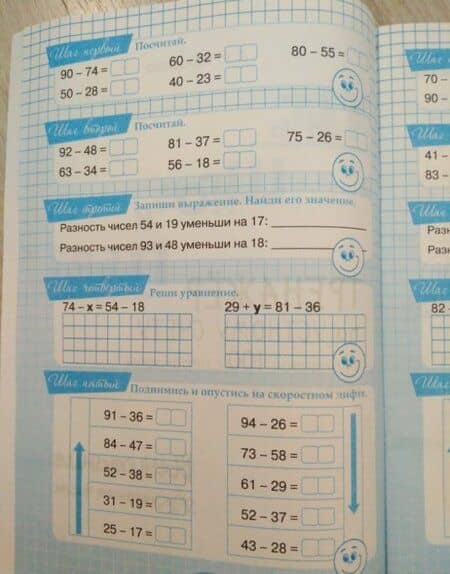 Шаг первый Посчитай.
90 – 74 = 60 – 32 = 80 – 55 =
50 – 28 = 40 – 23 =
Шаг второй Посчитай.
92 – 48 = 81 – 37 = 75 – 26 =
63 – 34 = 56 – 18 =
Шаг третий Запиши выражение. Найди его значение.
Разность чисел 54 и 19 уменьши на 17:
Разность чисел 93 и 48 уменьши на 18:
Шаг четвертый Реши уравнение.
74 – x = 54 – 18 29 + y = 81 – 36
Шаг пятый Поднимись и опустись на скоростном лифте.
91 – 36 = 94 – 26 =
84 – 47 = 73 – 58 =
52 – 38 = 61 – 29 =
31 – 19 = 52 – 37 =
25 – 17 = 43 – 28 =
Шаг
70 –
90 –
Шаг
41 –
83 –
Разн
Разн
Шаг
82 –
Шаг